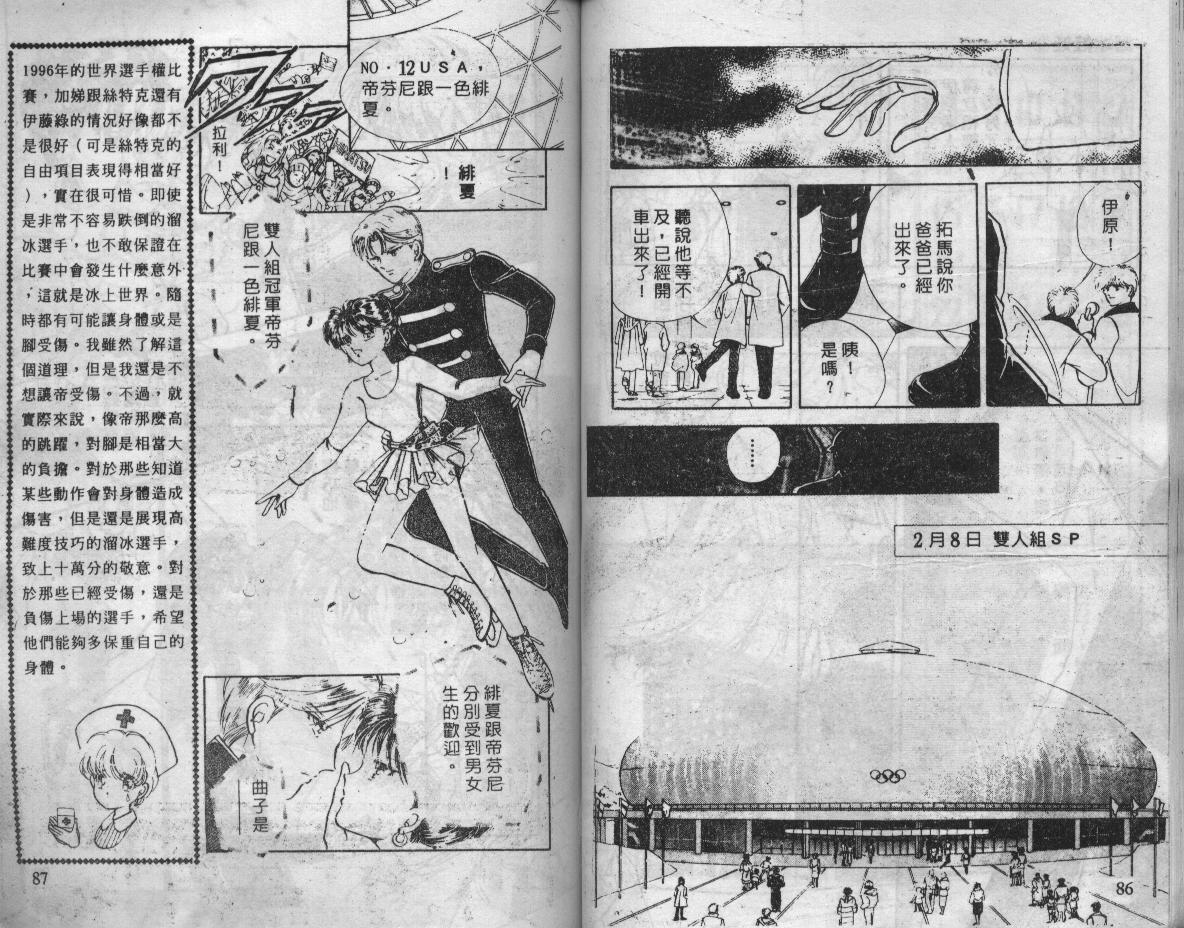 伊原！
拓馬說你
爸爸已經
出來了。
咦！
是嗎？
聽說他等不
及，已經開
車出來了！
⋯⋯
2月8日 雙人組SP
86
NO．12USA，
帝芬尼跟一色緋
夏。
緋夏
！
拉利！
雙人組冠軍帝芬
尼跟一色緋夏。
緋夏跟帝芬尼
分別受到男女
生的歡迎。
曲子是
1996年的世界選手權比
賽，加娣跟絲特克還有
伊藤綠的情況好像都不
是很好（可是絲特克的
自由項目表現得相當好
），實在很可惜。即使
是非常不容易跌倒的溜
冰選手，也不敢保證在
比賽中會發生什麼意外
，這就是冰上世界。隨
時都有可能讓身體或是
腳受傷。我雖然了解這
個道理，但是我還是不
想讓帝受傷。不過，就
實際來說，像帝那麼高
的跳躍，對腳是相當大
的負擔。對於那些知道
某些動作會對身體造成
傷害，但是還是展現高
難度技巧的溜冰選手，
致上十萬分的敬意。對
於那些已經受傷，還是
負傷上場的選手，希望
他們能夠多保重自己的
身體。
87